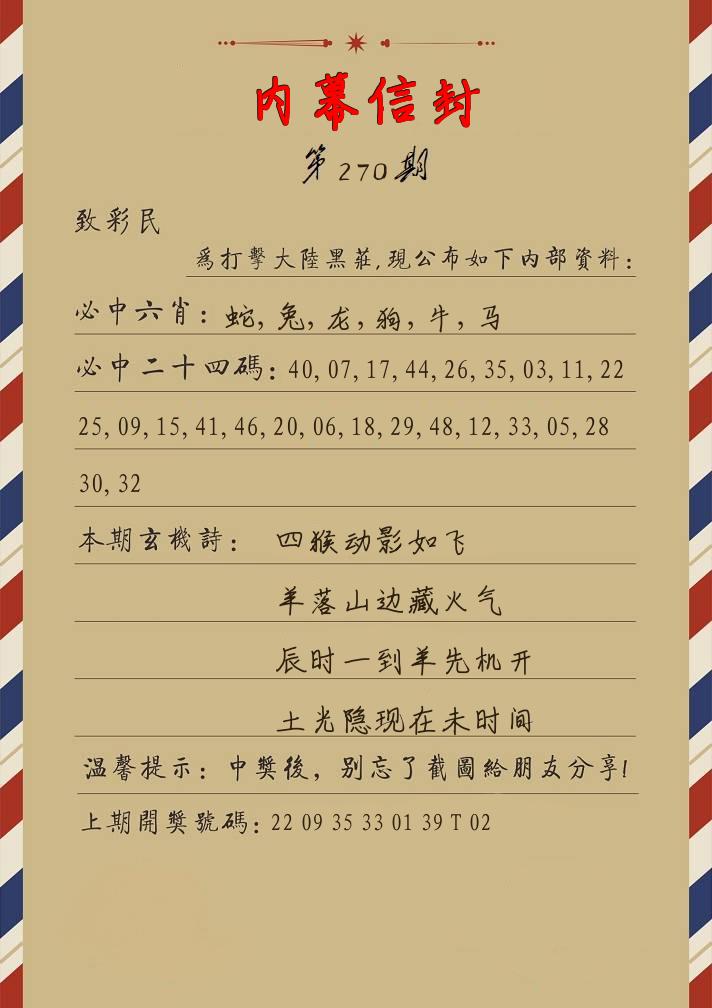 内幕信封
第270期
致彩民
爲打擊大陸黑莊,現公布如下内部資料:
必中六肖: 蛇, 兔, 龙, 狗, 牛, 马
必中二十四碼: 40, 07, 17, 44, 26, 35, 03, 11, 22
25, 09, 15, 41, 46, 20, 06, 18, 29, 48, 12, 33, 05, 28
30, 32
本期玄機詩: 四猴动影如飞
羊落山边藏火气
辰时一到羊先机开
土光隐现在未时间
温馨提示: 中獎後, 别忘了截圖給朋友分享!
上期開獎號碼: 22 09 35 33 01 39 T 02